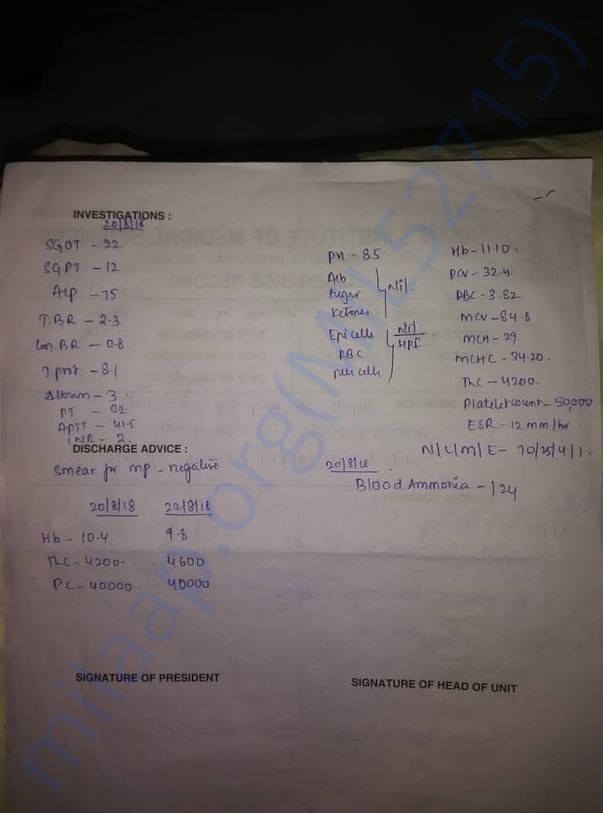 INVESTIGATIONS :
20/8/18
SGOT - 22.
SGPT - 12
Alp - 75
T.BR - 2.3
Con BR - 0.8
T. prot - 8.1
Albumin - 3
PT - 22
APTT - 41.5
INR - 2.
PH - 8.5
Alb
Sugar
Ketones
Nil
Epi cells
RBC
Pus cells
Nil
HPF
Hb - 11.10.
PCV - 32.4
RBC - 3.82
MCV - 84.8
MCH - 29
MCHC - 34.20.
TLC - 4200.
Platelet count - 50,000
ESR - 12 mm/hr
N/L/M/E - 70/25/4/1.
DISCHARGE ADVICE :
Smear for MP - negative
20/8/18
Blood Ammonia - 124
20/8/18 22/8/18
Hb - 10.4 9.8
TLC - 4200. 4600
PC - 40000 40000
SIGNATURE OF PRESIDENT
SIGNATURE OF HEAD OF UNIT
milaap.org(MIL52715)